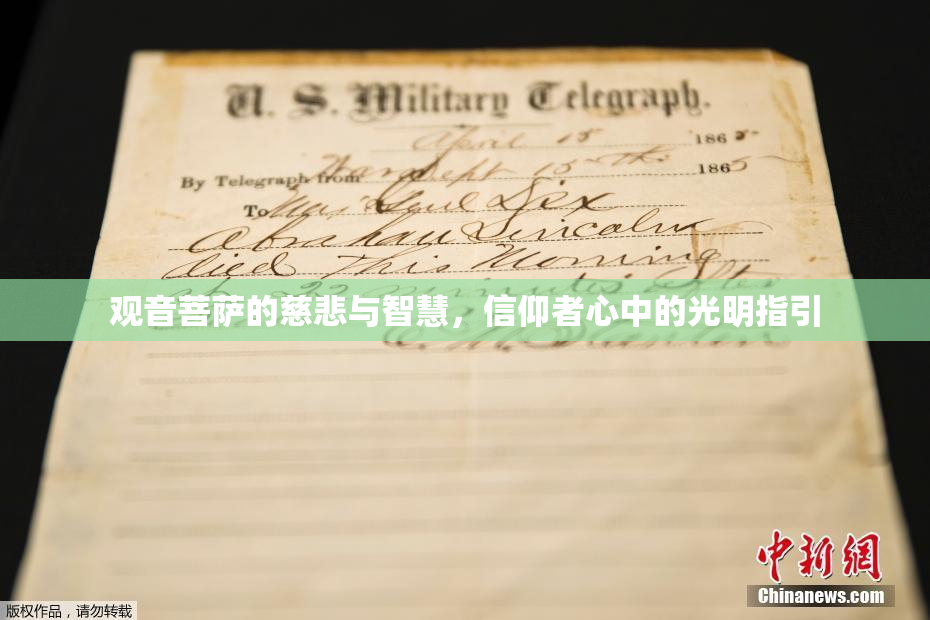 U. S. Military Telegraph.
April 15 1865
By Telegraph from War Dept 15th 1865
To Maj Genl Dix
Abraham Lincoln
died This Morning
22 minutes after
观音菩萨的慈悲与智慧，信仰者心中的光明指引
Stanton
中新网
Chinanews.com
版权作品，请勿转载